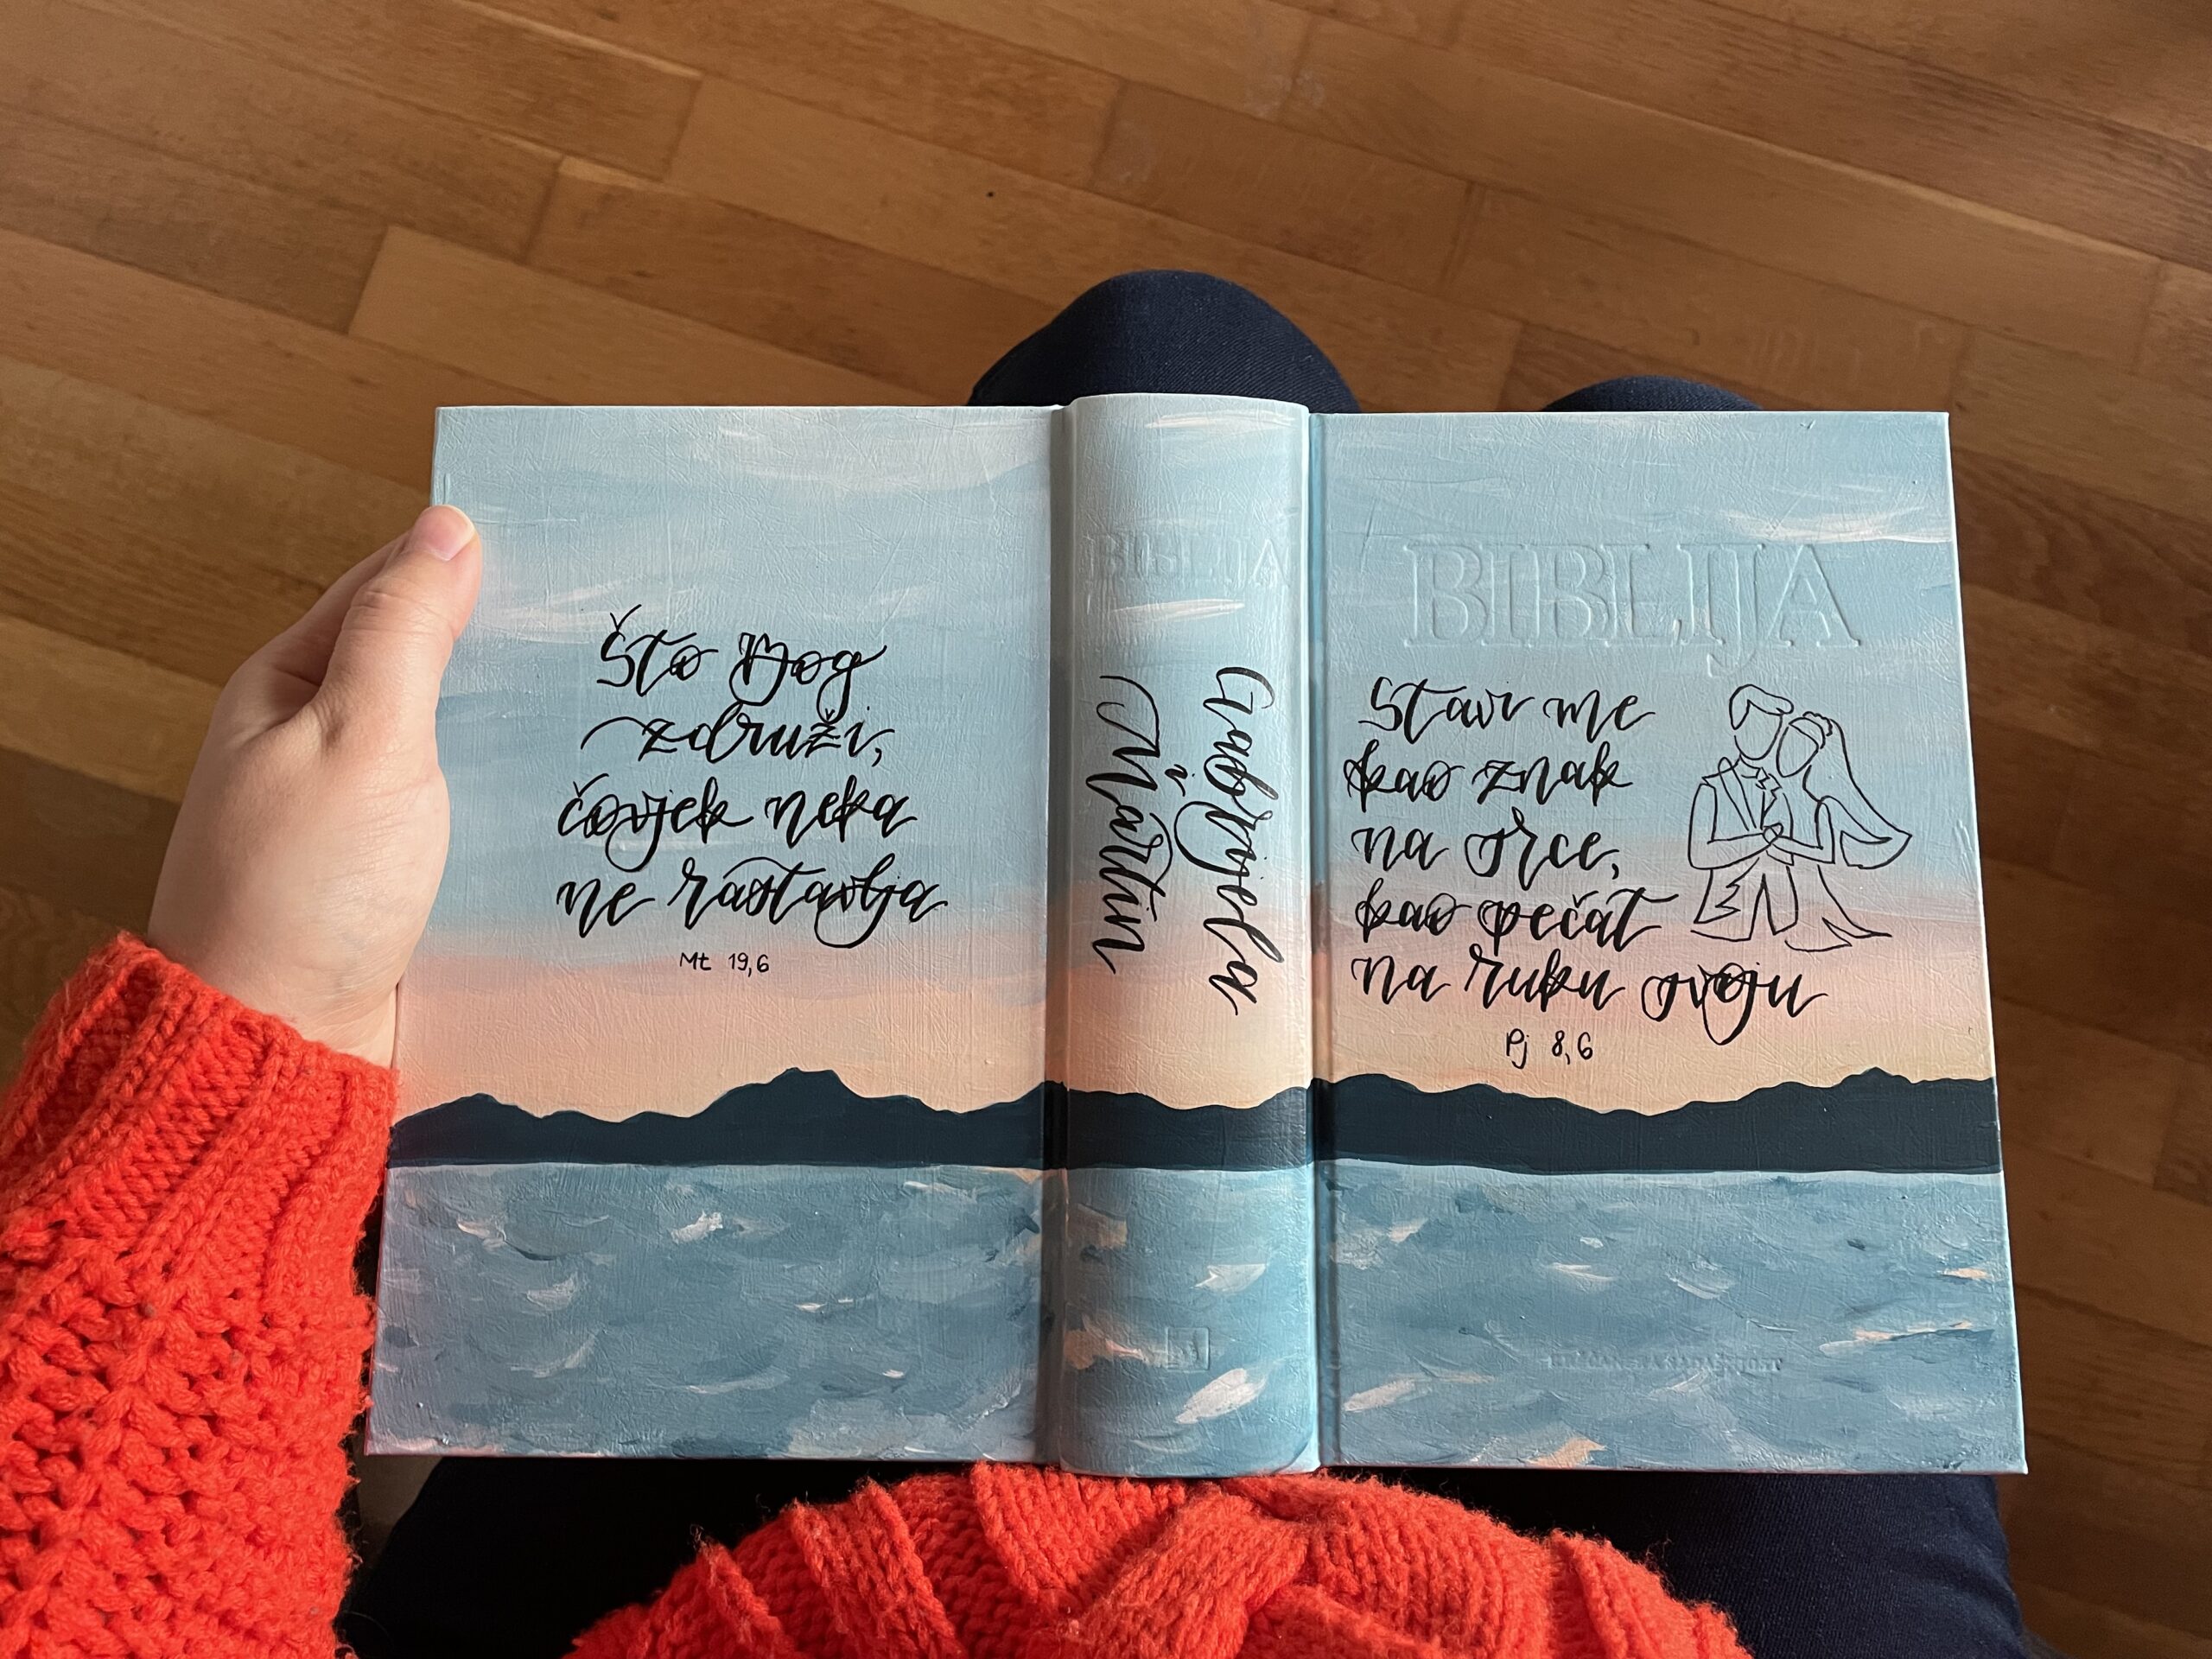 Što Bog
združi,
čovjek neka
ne rastavlja
Mt 19,6
BIBLIJA
Gabrijela
i Martin
BIBLIJA
Stavi me
kao znak
na srce,
kao pečat
na ruku svoju
Pj 8,6
KRŠĆANSKA SADAŠNJOST